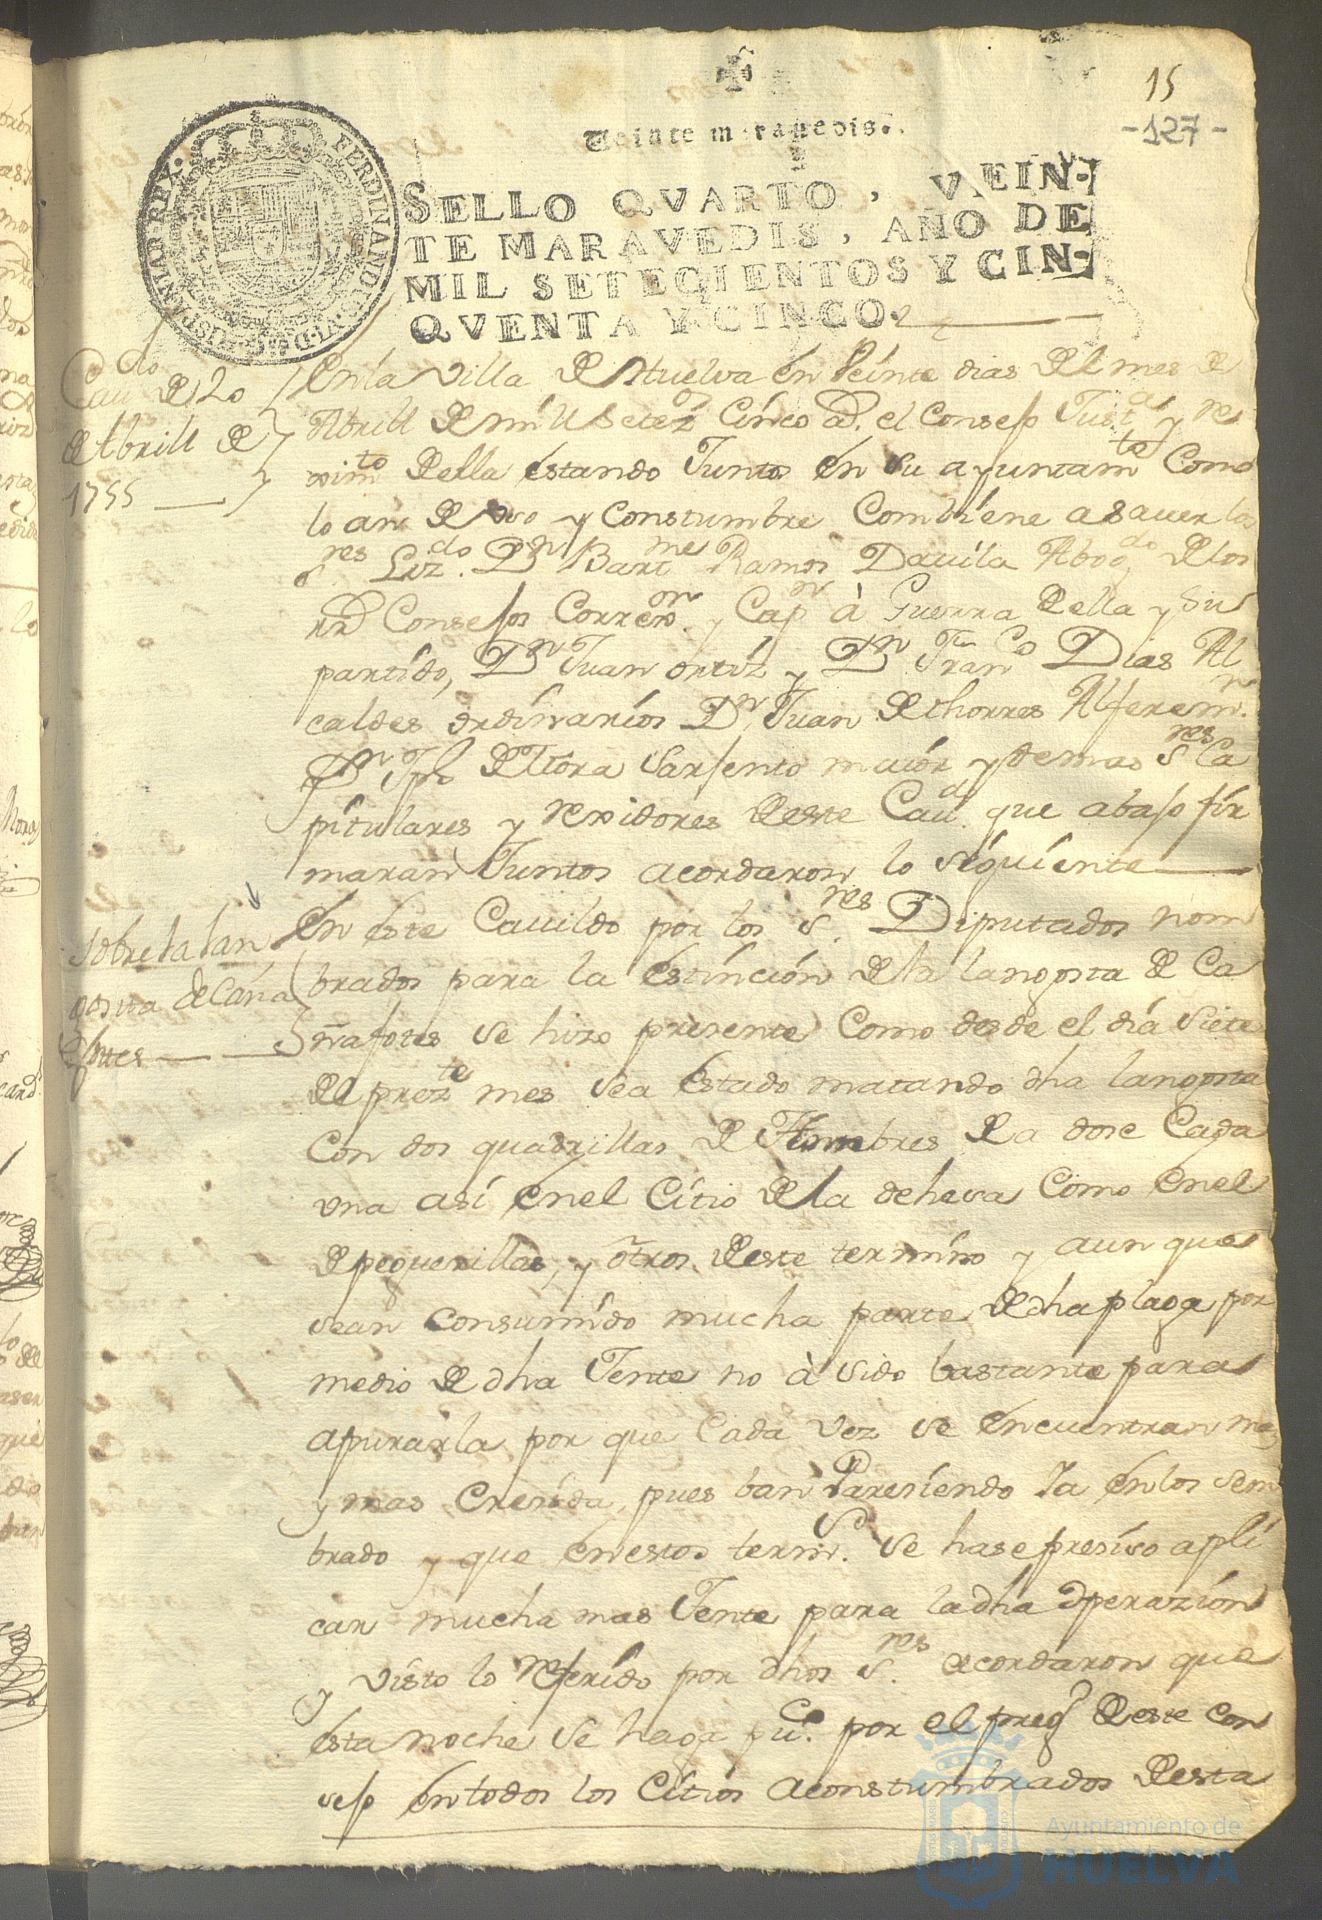 15
-127-
Veinte maravedis.
SELLO QVARTO, VEIN-
TE MARAVEDIS, AÑO DE
MIL SETECIENTOS Y CIN-
QVENTA Y CINCO.
FERDINANDUS VI D.G. HISPANIAR REX
Cau.do de 20
de Abrill de
1755
En la villa de Huelva en Veinte dias del mes de
Abrill de mill setez.s Cinco a.d el Consejo Just.a y re
xim.to della estando Juntos en su ayuntam.to Como
lo an de uso y constumbre Combiene a sauer los
S.res Liz.do D.n Bart.me Ramos Dauila Abog.do de los
rr.s Consejos Corre.or y Cap.n à Guerra della y su
partido, D.n Juan ortiz y D.n Fran.co Dias Al
caldes ordinarios D.n Juan de thorres Alferem.r
D.n Jph de Mora Sarjento maior y demas S.res Ca
pitulares y rexidores deste Cau.do que abajo fir
maran Juntos acordaron lo siguiente
sobre la lan
gosta de Caña
fotes
En este Cauildo por los S.res Diputados nom
brados para la estinción de la langosta de Ca
ñafotes se hizo presente Como desde el día siete
del prez.te mes sea Estado matando dha langosta
Con dos quadrillas de Hombres de a dose Cada
una asi en el Citio de la dehesa Como en el
de pequenillas, y otros deste termino y aun que
sean consumido mucha parte de dha plaga por
medio de dha Jente no à sido bastante para
apurarla por que Cada vez se encuentran mas
y mas Cresida, pues ban Paresiendo Ia en los sem
brado y que en estos termin.s se hase presiso apli
car mucha mas Jente para la dha operazión
y visto lo referido por dhos S.res acordaron que
esta noche se haga pu.co por el preg.o deste con
sejo en todos los Citios aconstumbrados desta
Ayuntamiento de
HUELVA